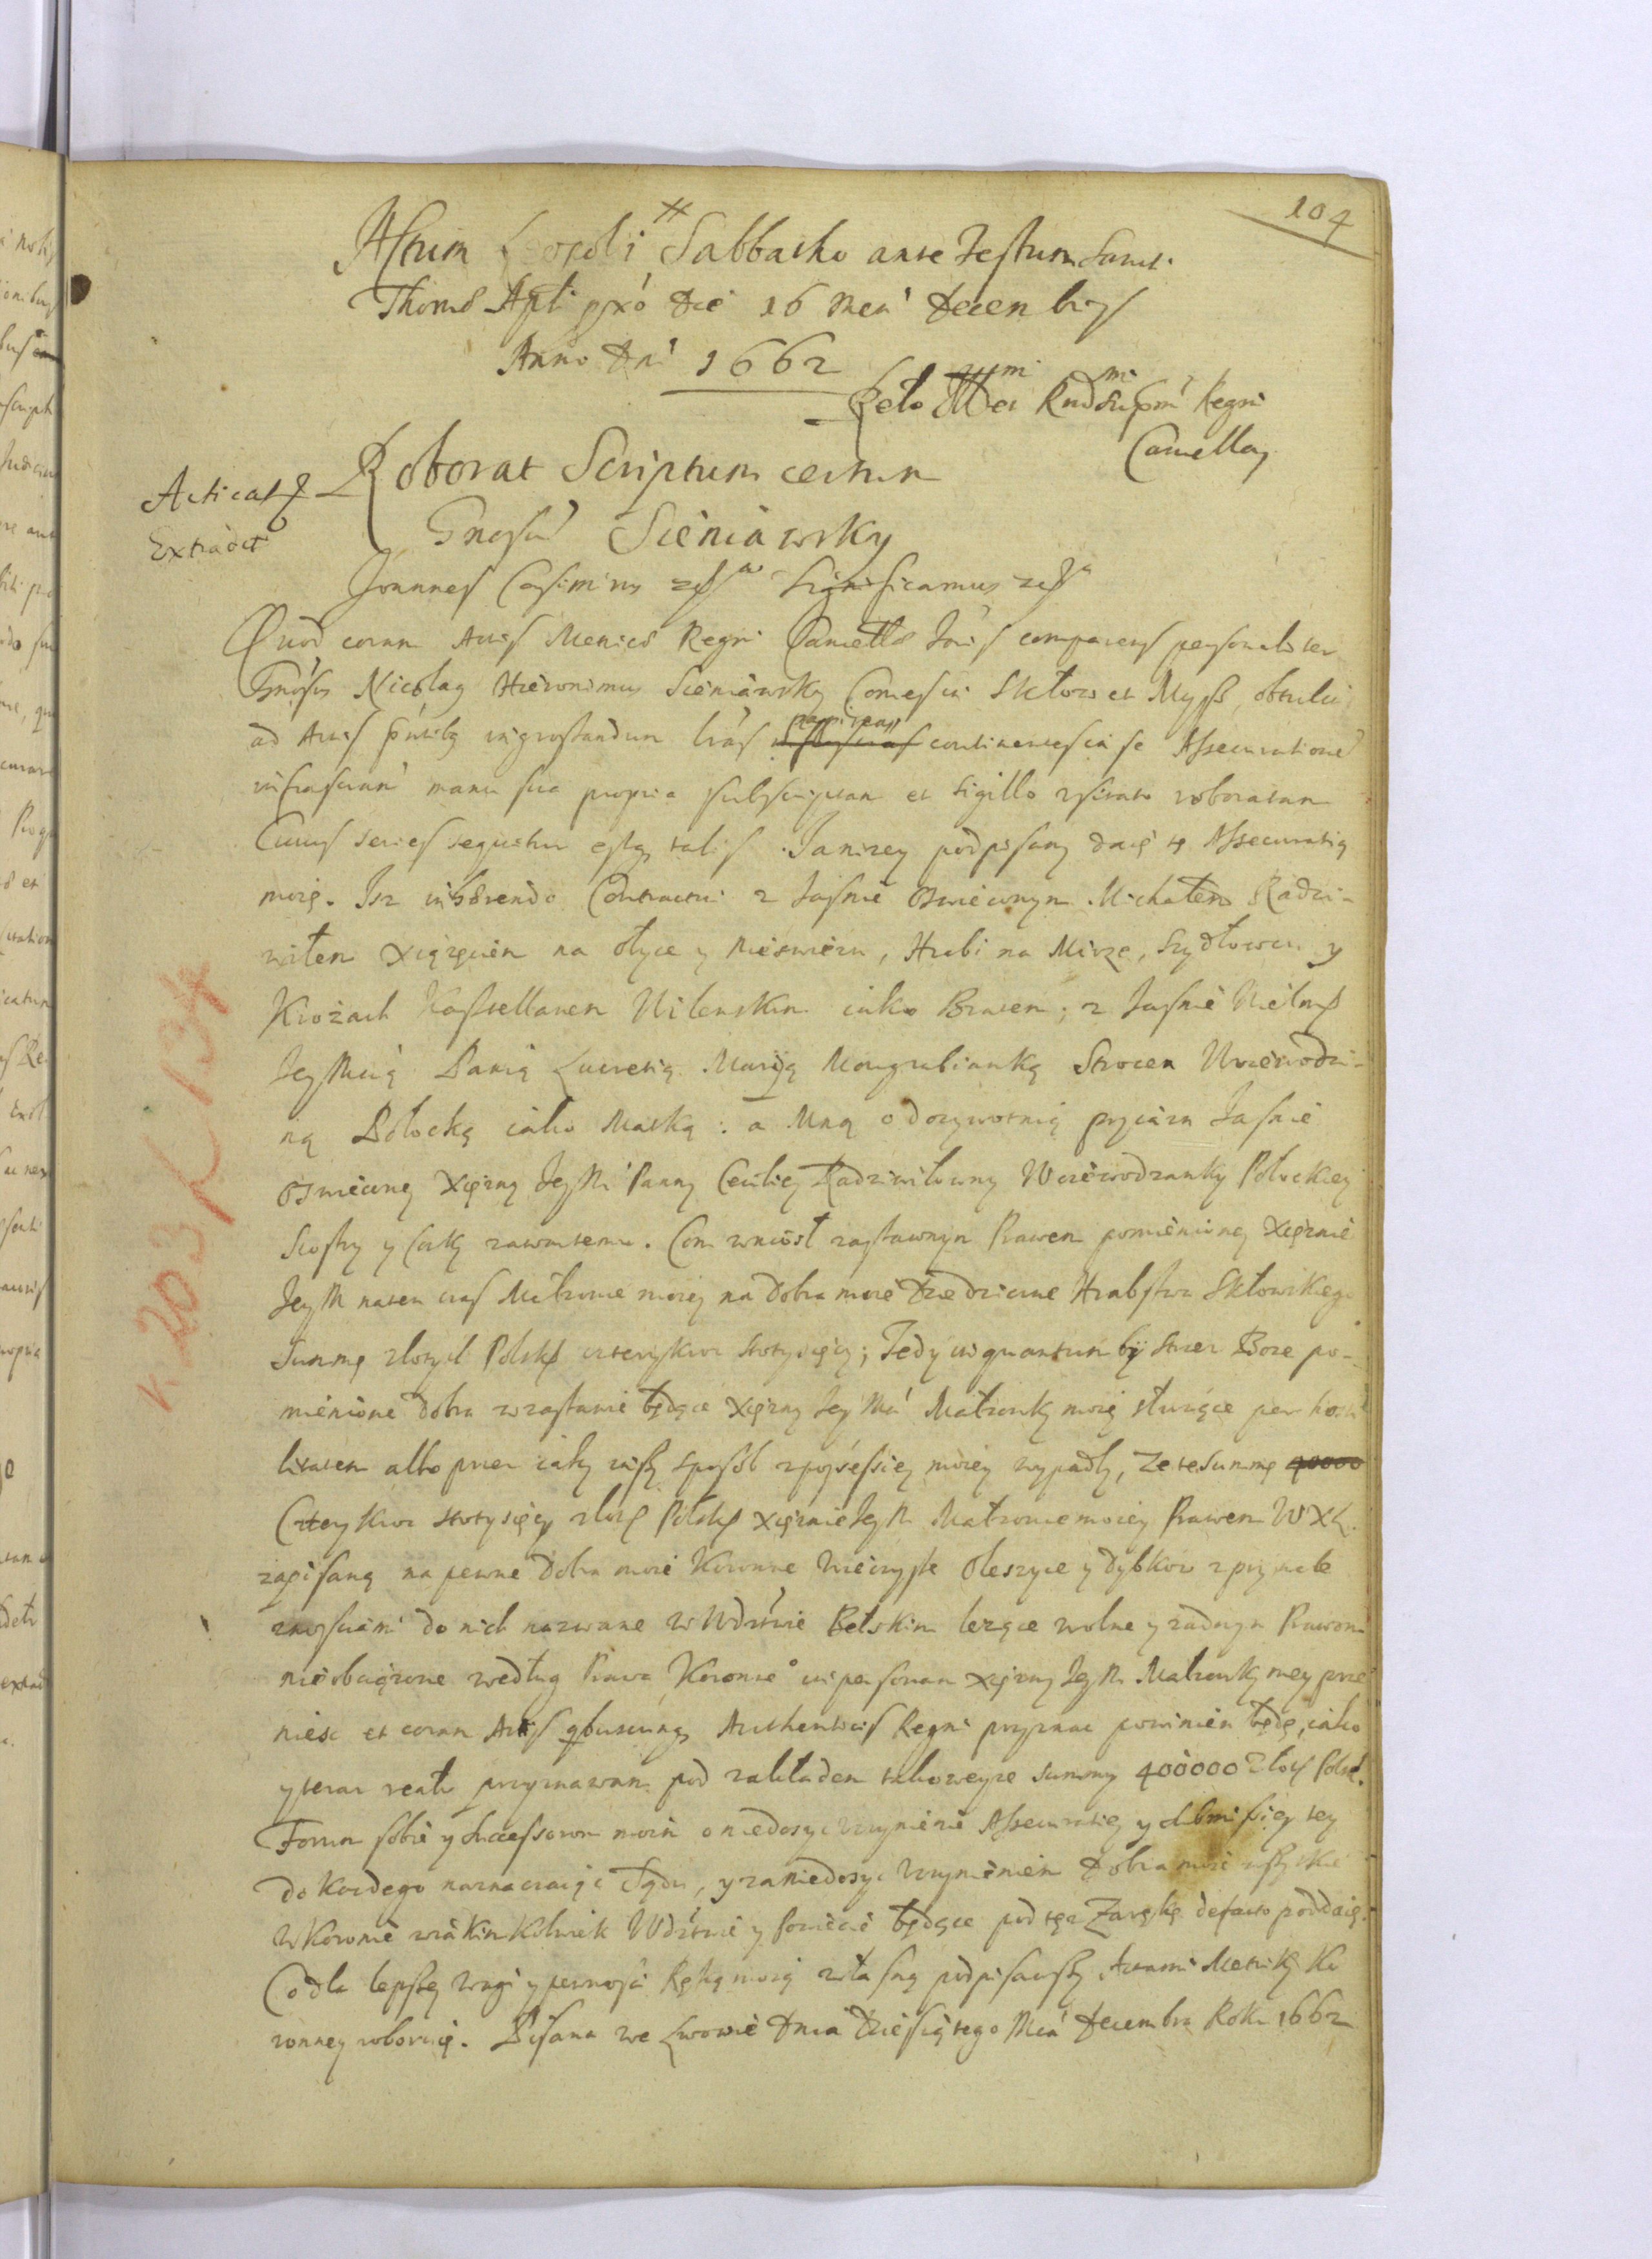 104
Actum Leopoli Sabbatho ante Festum Sancti
Thomæ Apli pxo die 16 Men Decembris
Anno Dni 1662
Relo Rndssmi Regni
Cancellarij
Acticat
Extradt
Roborat Scriptum certum
Gnosu Sieniawsky
Joannes Casimirus Significamus
Quod coram Actis Metrices Regni Cancellæ Toris comparens personaliter
Gnosus Nicolaus Hieronimus Sieniawsky Comes in Sklow et Mysz, obtulit
ad Actis pntibus ingrossandum lras papireas continentes in se Assecurationem
infrascriptam manu sua propria subscriptam et sigillo roboratam
Cuius series sequitur estq talis. Ja nizey podpisany daię tę Assecuratią
moię. Isz inhærendo Contractui z Jasnie Oswieconym Michałem Radzi-
wiłem Xiążęciem na Ołyce y Nieswiezu, Hrabi na Mirze, Szydłowcu y
Krożach Kasztellanem Wilenskim iako Bratem; z Jasnie Wielmß
Jey Mcią Panią Lucretią Mariją Strocen Woiewodzi-
ną Połocką iako Matką: a Mną o dozywotnią przyiazn Jasnie
Oswieconey Xiężny Jey M Panny Cecilij Radziwiłowny Woiewodzanky Połockiey
Siostry y Corky zawartemu. Com wniosł zastawnym Prawem pomienioney Xiężnie
Jey M na ten czas Małzonce moiey na dobra moie Dziedziczne Hrabstwa Skłowskiego
Summę złotych Polskß czterykroc stotysięcy; Tedy inquantum by strzez Boze po-
mienione dobra w zastawie będące Xiężny Jey Mci Małzonky moiey słuzące per hosti
litatem albo przez iaky insy sposob z possessiey moiey wypadły, Ze te Summę 40000
Czterykroc stotysięcy złotß Polskß Xiężnie Jey M Małzonce moiey Prawem W X L
zapisaną na pewne dobra moie Koronne Wieczyste Oleszyce y Dybkow z przynale
znosciami do nich nazwane w Wdztwie Bełskim lezące wolne y zadnym Prawem
nie obciążone według Prawa Koronnego in personam Xiężny Jey M Małzonky mey prze
niesc et coram Actis quibuscunq Authenticis Regni przyznac powinien będę, iako
y teraz realr przyznawam pod zakładem takoweyze Summy 400000 Złotß Polskß.
Forum sobie y Successorom moim o niedosyc uczynienie Assecuratiey y submissiey tey
do kozdego naznaczaiąc Sądu, y za niedosyc Uczynieniem Dobra moie wszytkie
w Koronie w iakimkolwiek Wdztwie y powiecie będące pod tęz Zarękę de facto poddaię.
Co dla lepszey wagi y pewnosci Ręką moią własną podpisawszy, Actami Metriky Ko
ronney roboruię. Pisana we Lwowie Dnia Dziesiątego Men Decembra Roku 1662
K 203 K 134